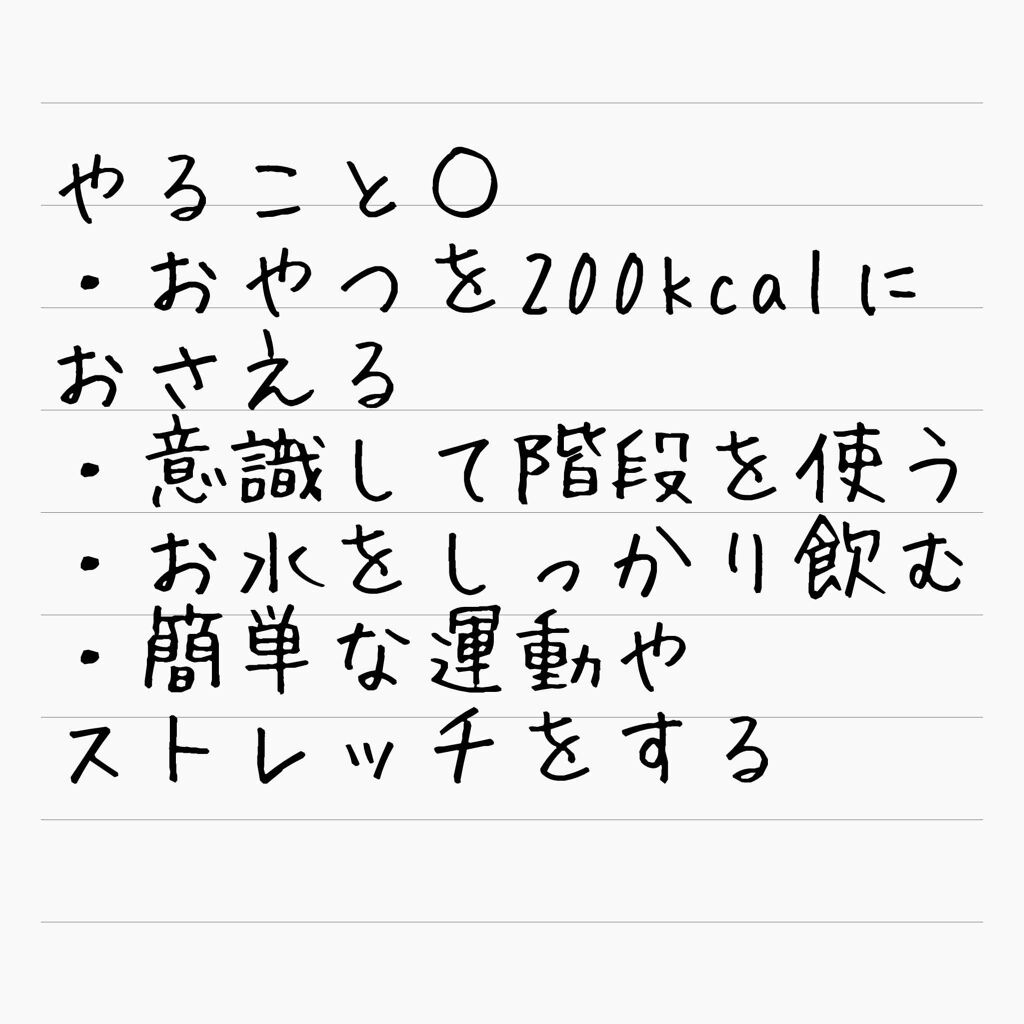 やること○
・おやつを200kcalに
おさえる
・意識して階段を使う
・お水をしっかり飲む
・簡単な運動や
ストレッチをする